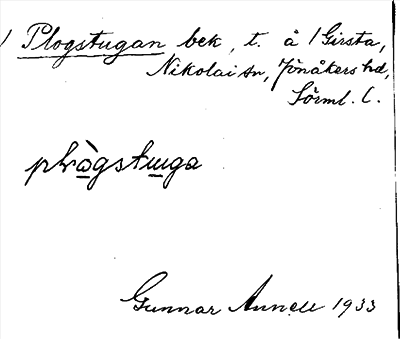 / Plogstugan bek, t. å / Girsta,
Nikolai sn, Jönåkers hd,
Sörml. l.
plògstuga
Gunnar Annell 1933